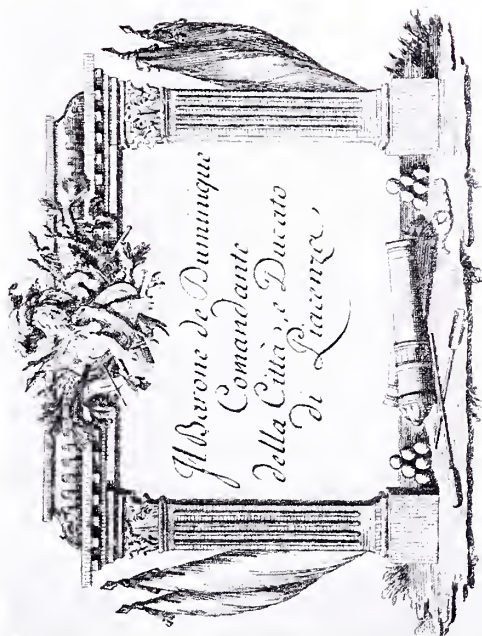 Il Barone de Duminique
Comandante
della Città, e Ducato
di Piacenza,